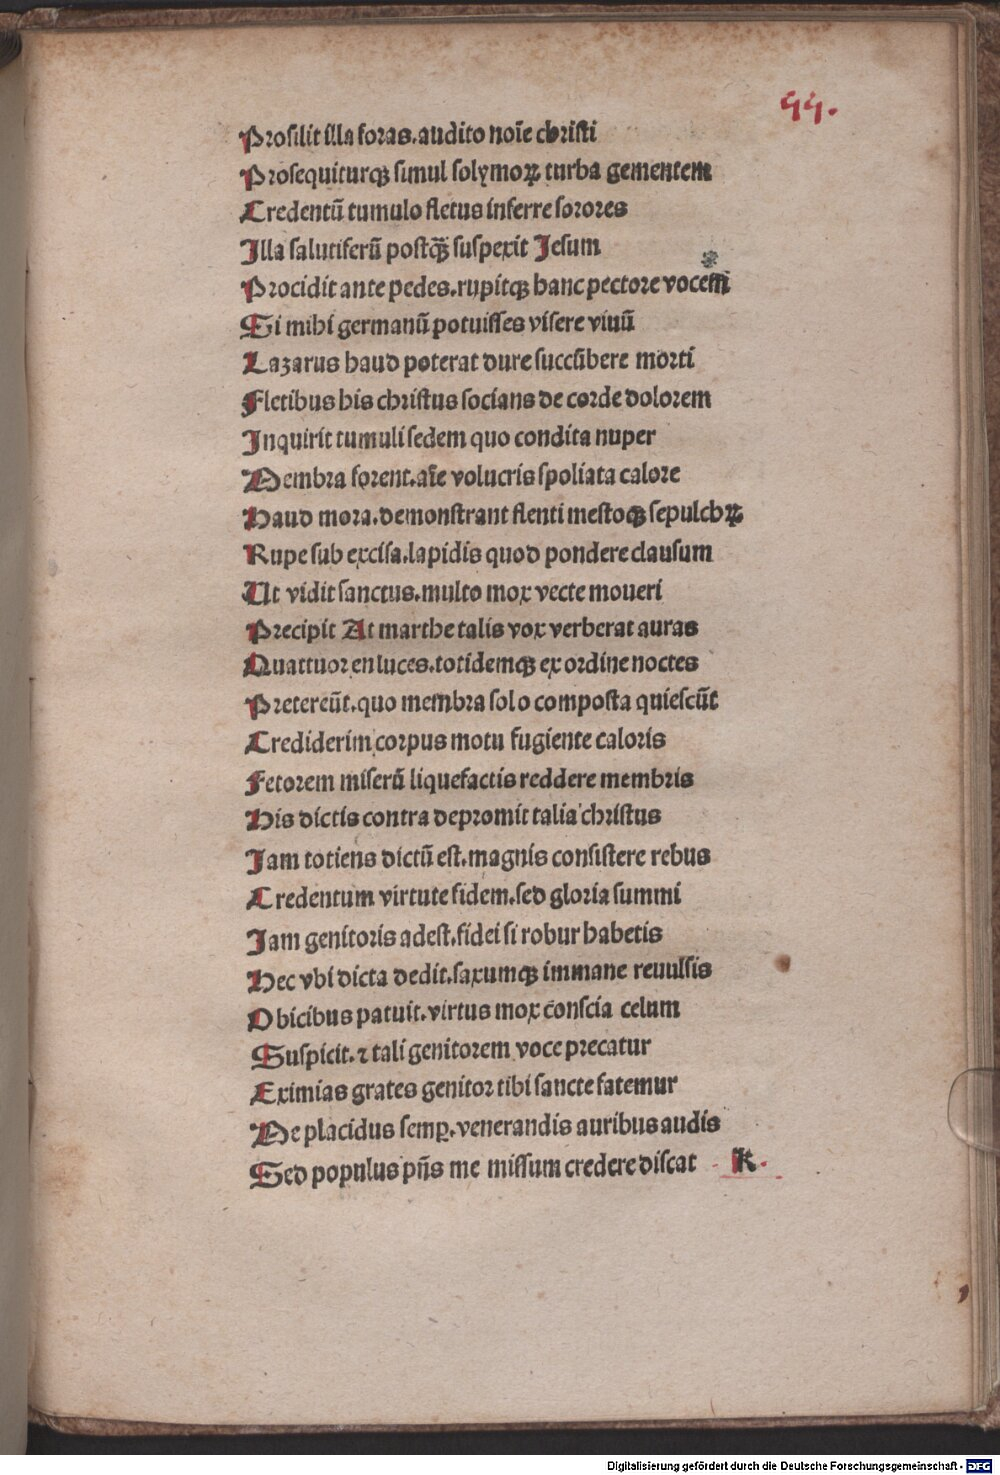 55.
Prosilit illa foras.audito noīe christi
Prosequiturqꝫ simul solymoꝝ turba gementem
Credentū tumulo fletus inferre sorores
Illa salutiferū postq̄ꝫ suspexit Jesum
Procidit ante pedes.rupitqꝫ hanc pectore vocem
Si mihi germanū potuisses visere viuū
Lazarus haud poterat dure succūbere morti
Fletibus his christus socians de corde dolorem
Inquirit tumuli sedem quo condita nuper
Membra forent.aīe volucris spoliata calore
Haud mora.demonstrant flenti mestoqꝫ sepulchꝝ
Rupe sub excisa.lapidis quod pondere clausum
Ut vidit sanctus.multo mox vecte moueri
Precipit At marthe talis vox verberat auras
Quattuor en luces.totidemqꝫ ex ordine noctes
Pretereūt.quo membra solo composta quiescūt
Crediderim corpus motu fugiente caloris
Fetorem miserū liquefactis reddere membris
His dictis contra depromit talia christus
Jam totiens dictū est.magnis consistere rebus
Credentum virtute fidem.sed gloria summi
Jam genitoris adest.fidei si robur habetis
Hec vbi dicta dedit.saxumqꝫ immane reuulsis
Obicibus patuit.virtus mox cōnscia celum
Suspicit.⁊ tali genitorem voce precatur
Eximias grates genitor tibi sancte fatemur
Me placidus semꝑ.venerandis auribus audis
Sed populus pn̄s me missum credere discat K.
Digitalisierung gefördert durch die Deutsche Forschungsgemeinschaft - DFG